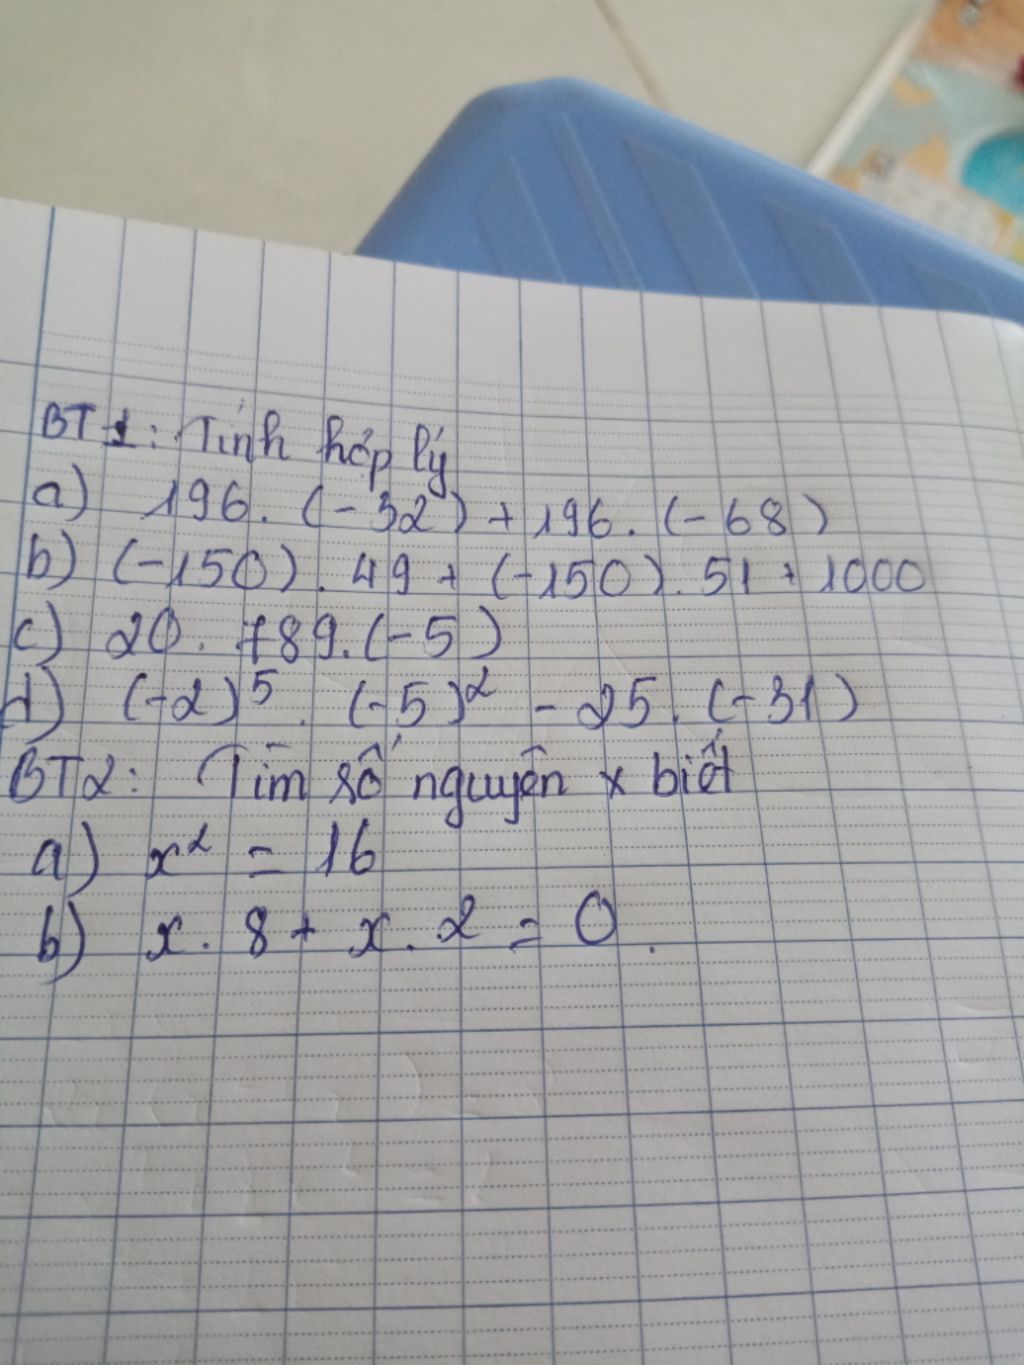 BT1: Tính hợp lý
a) 196. (-32) + 196. (-68)
b) (-150). 49 + (-150). 51 + 1000
c) 20. 789.(-5)
d) (-2)⁵. (-5)² - 25. (-31)
BT2: Tìm số nguyên x biết
a) x² = 16
b) x. 8 + x. 2 = 0.